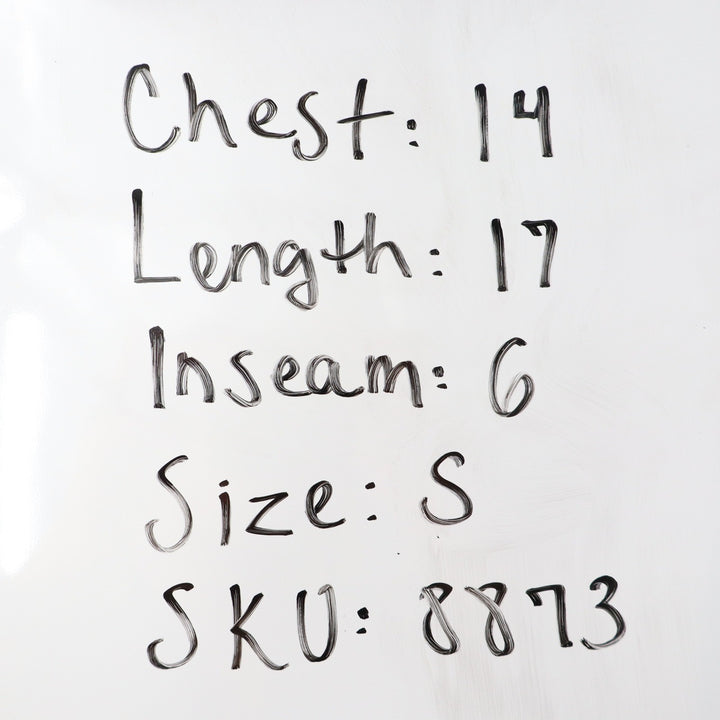 Chest: 14
Length: 17
Inseam: 6
Size: S
SKU: 8873